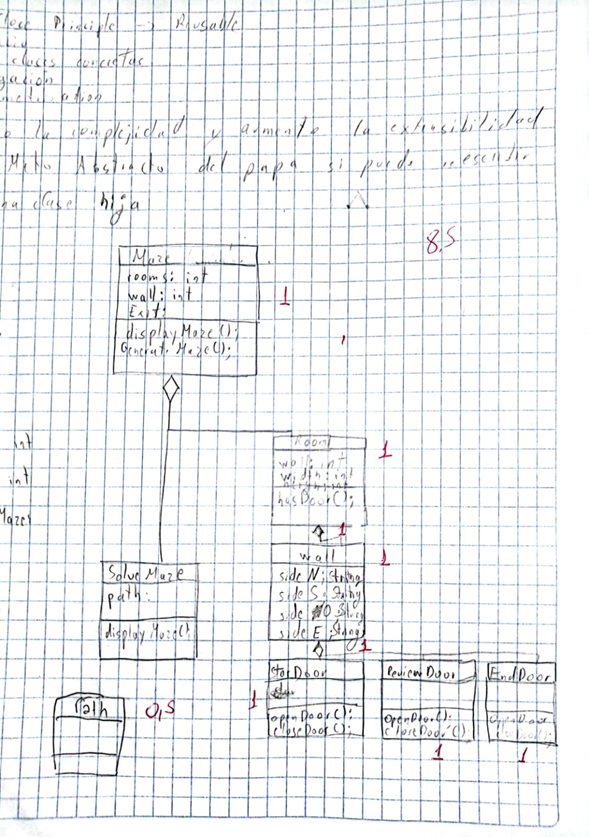 Principle -> Reusable
clases concretas
la complejidad y aumento la extensibilidad
Abstracto del papa si puede
clase hija
8,5
Maze
rooms: int
wall: int
Exit:
1
displayMaze();
GenerateMaze();
int
int
Room
1
wall: int
width: int
hasDoor();
1
wall
1
side N: String
side S: String
side O String
side E: String
1
SolveMaze
path:
displayMaze()
StarDoor
1
openDoor();
closeDoor();
ReviewDoor
openDoor();
closeDoor()
1
EndDoor
1
Path
0,5